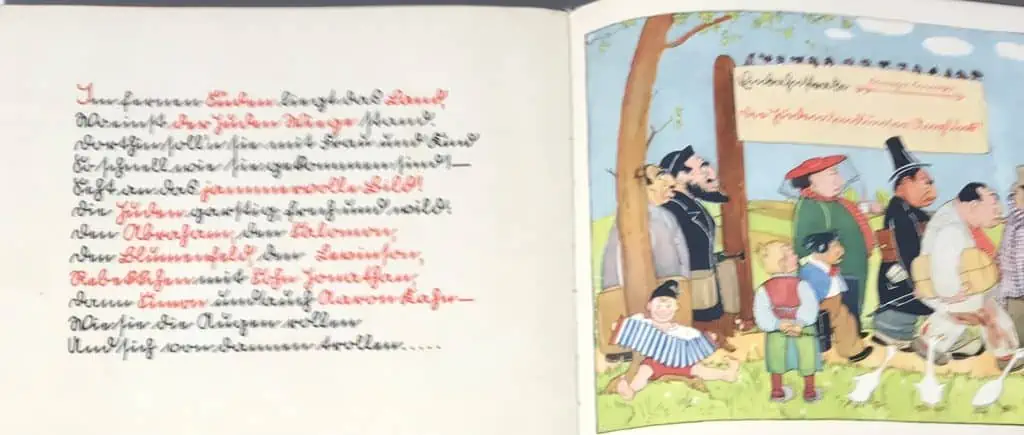 Im fernen Süden liegt das Land,
Wo einst der Juden Wiege stand.
Dorthin soll'n sie mit Frau und Kind
So schnell wie sie gekommen sind! —
Seht an das jammervolle Bild!
Die Juden garstig, frech und wild:
Den Abraham, den Salomon,
Den Blumenfeld, den Levinson,
Rebekkchen mit Sohn Jonathan,
Dann Simon und auch Aaron Kahn —
Wie sie die Augen rollen
Und sich von dannen trollen.....
Einbahnstraße
Die Juden sind unser Unglück!